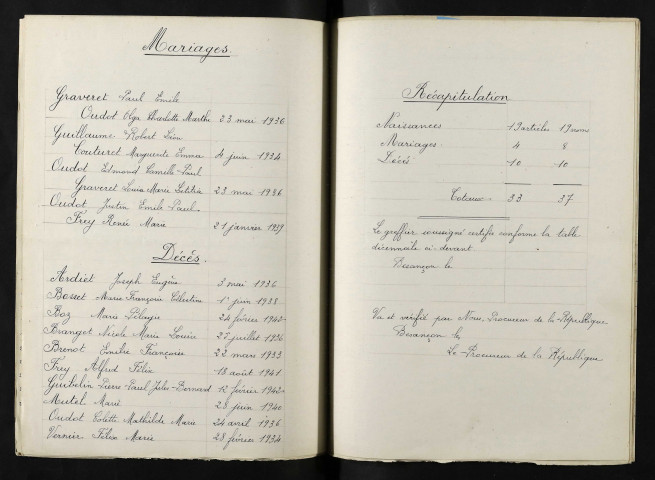 Mariages.
Graveret Paul Emile
Oudot Olga Charlotte Marthe 23 mai 1936
Guillaume Robert Léon
Couturet Marguerite Emma 4 juin 1934
Oudot Edmond Camille Paul
Graveret Louise Marie Letitia 23 mai 1936
Oudot Justin Emile Paul
Frey Renée Marie 21 janvier 1939
Décès.
Ardiet Joseph Eugène 3 mai 1936
Bosset Marie Françoise Célestine 1er juin 1938
Boz Marie Pélagie 24 février 1940
Franget Nicole Marie Louise 27 juillet 1936
Brenot Françoise 22 mars 1933
Frey Alfred Félix 18 août 1941
Guibelin Pierre Paul Jules Bernard 12 février 1942
Mutel Marie 28 juin 1940
Oudot Colette Mathilde Marie 24 avril 1936
Vernier Félix Marie 28 février 1934
Récapitulation
Naissances 19 articles 19 noms
Mariages 4 8
Décès 10 10
Totaux 33 37
Le greffier soussigné certifie conforme la table
décennale ci-devant
Besançon le
Vu et vérifié par Nous, Procureur de la République
Besançon le
Le Procureur de la République